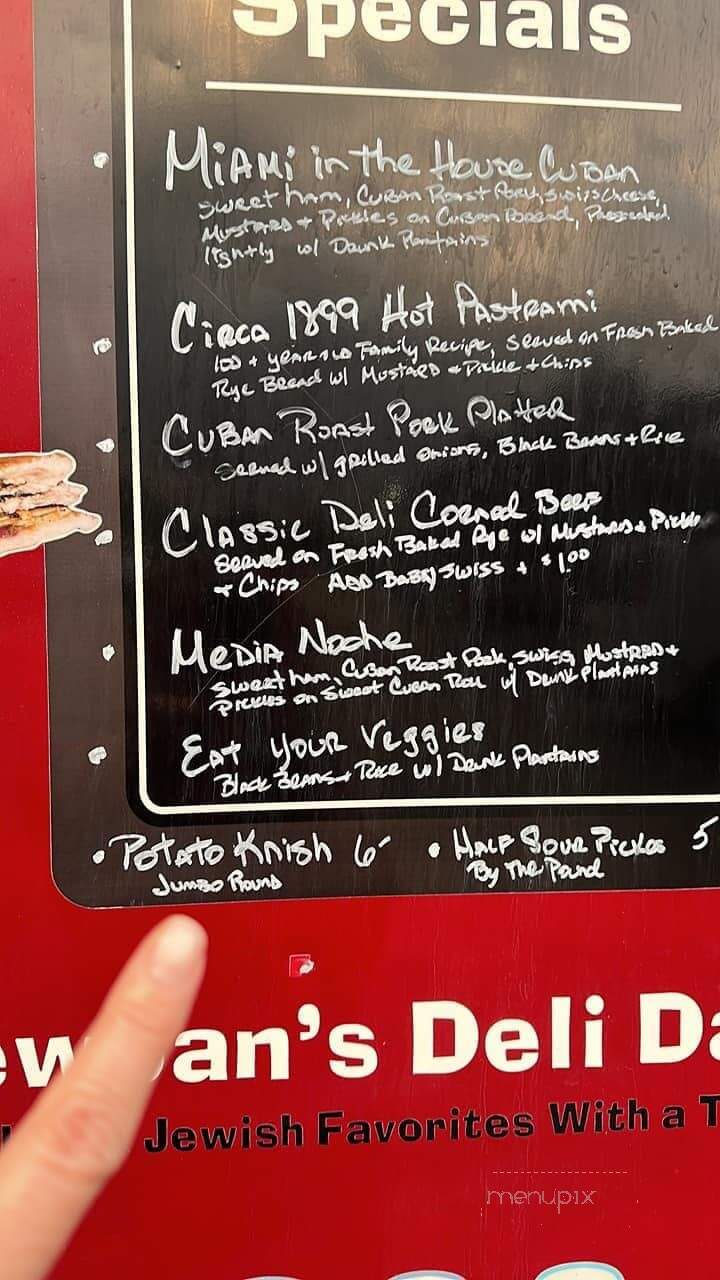 Specials
MiAMi in the House Cuban
Sweet ham, Cuban Roast Pork, Swiss Cheese,
Mustard + Pickles on Cuban Bread, Pressed
lightly w/ Drunk Plantains
Circa 1899 Hot Pastrami
100 + year old Family Recipe, Served on Fresh Baked
Rye Bread w/ Mustard + Pickle + Chips
Cuban Roast Pork Platter
Served w/ grilled onions, Black Beans + Rice
Classic Deli Corned Beef
Served on Fresh Baked Rye w/ Mustard + Pickle
+ Chips Add Baby Swiss + $1.00
Media Noche
Sweet ham, Cuban Roast Pork, Swiss, Mustard +
Pickles on Sweet Cuban Roll w/ Drunk Plantains
Eat Your Veggies
Black Beans + Rice w/ Drunk Plantains
• Potato Knish 6- • Half Sour Pickles 5
Jumbo Round By The Pound
ew an's Deli Da
Jewish Favorites With a T
menupix